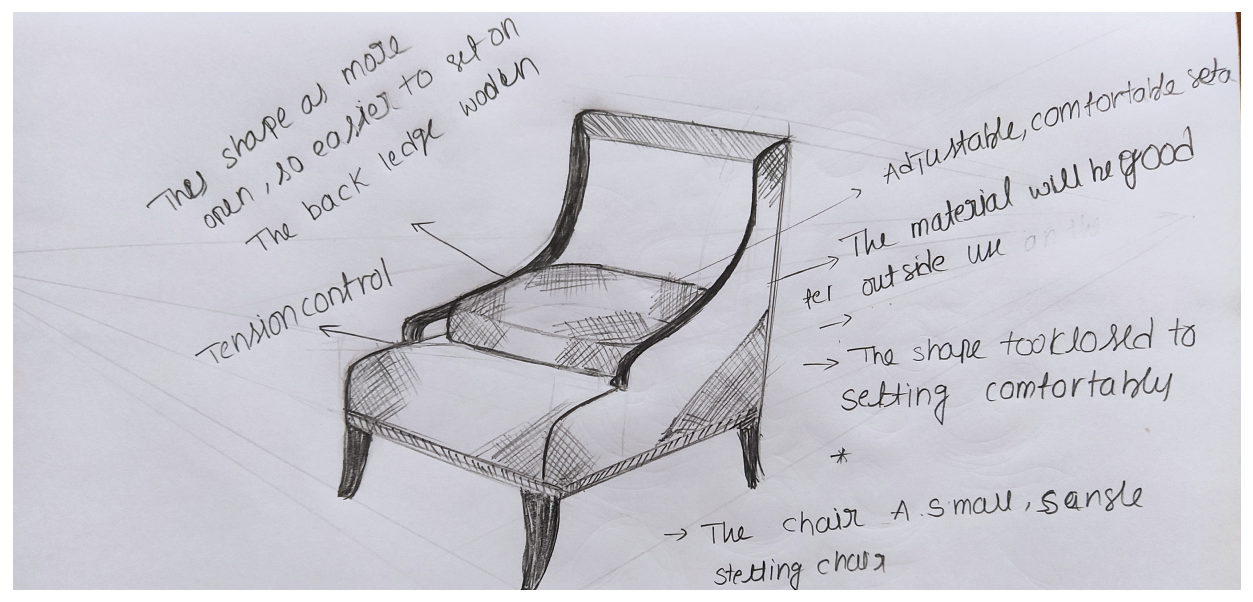 Thes shape as more
open, so easier to set on
The back ledge wooden
Tension control
Adjustable, comfortable seta
The material will be good
for outside use on the
→
→ The shape too closed to
setting comfortably
*
→ The chair A small, sangle
stetting chair